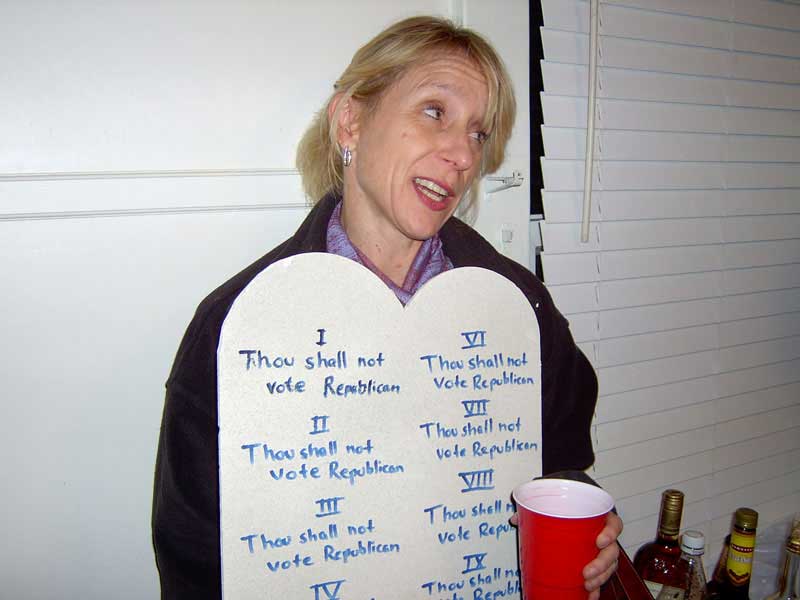 I
Thou shall not
vote Republican
II
Thou shall not
vote Republican
III
Thou shall not
vote Republican
IV
VI
Thou shall not
vote Republican
VII
Thou shall not
vote Republican
VIII
Thou shall n
vote Repub
IX
Thou shall not
vote Repub